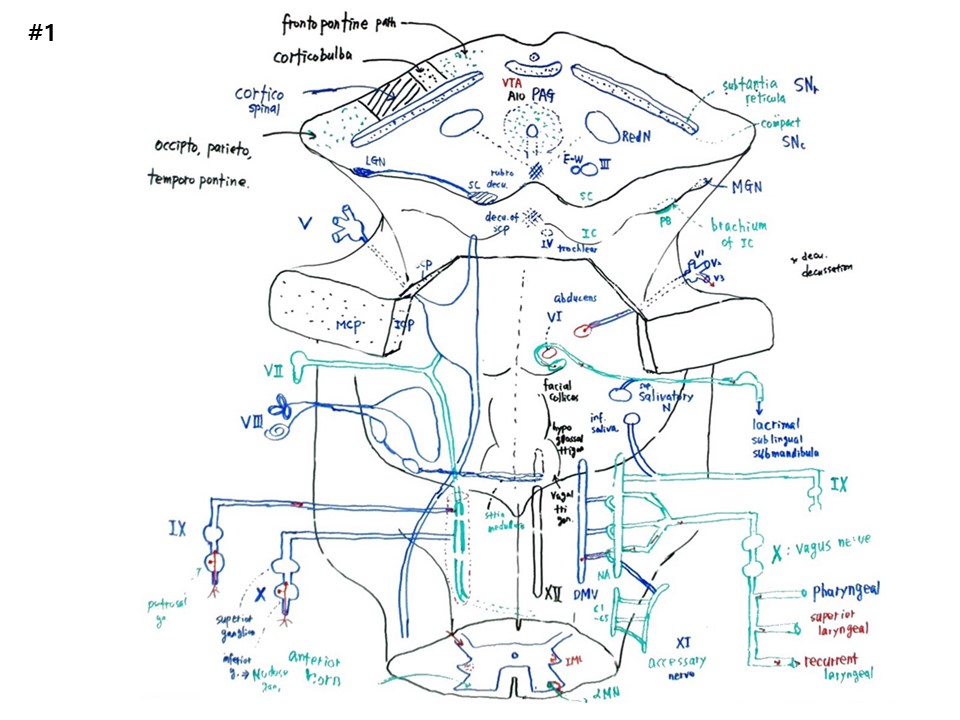 #1
frontopontine path
corticobulba
cortico
spinal
occipto, parieto,
temporo pontine.
VTA
A10 PAG
substantia
reticula
SNr
compact
SNc
RedN
E-W
III
LGN
rubro
decu.
SC
SC
MGN
decu. of
scp
IV
trochlear
IC
PB
brachium
of IC
* decu.
decussetion
V
V1
V2
V3
CP
MCP
ICP
abducens
VI
VII
facial
collicus
sup
Salivatory
N
lacrimal
sublingual
submandibula
VIII
hypo
glossal
trigon
inf.
saliva.
vagal
tri
gon.
stria
medullaris
IX
IX
X : vagus nerve
X
XII
DMV
NA
C1
-C5
pharyngeal
superior
laryngeal
recurrent
laryngeal
petrosal
ga
superior
ganglion
inferior
g. → Nodose
gan,
anterior
horn
XI
accessary
nerve
IML
αMN